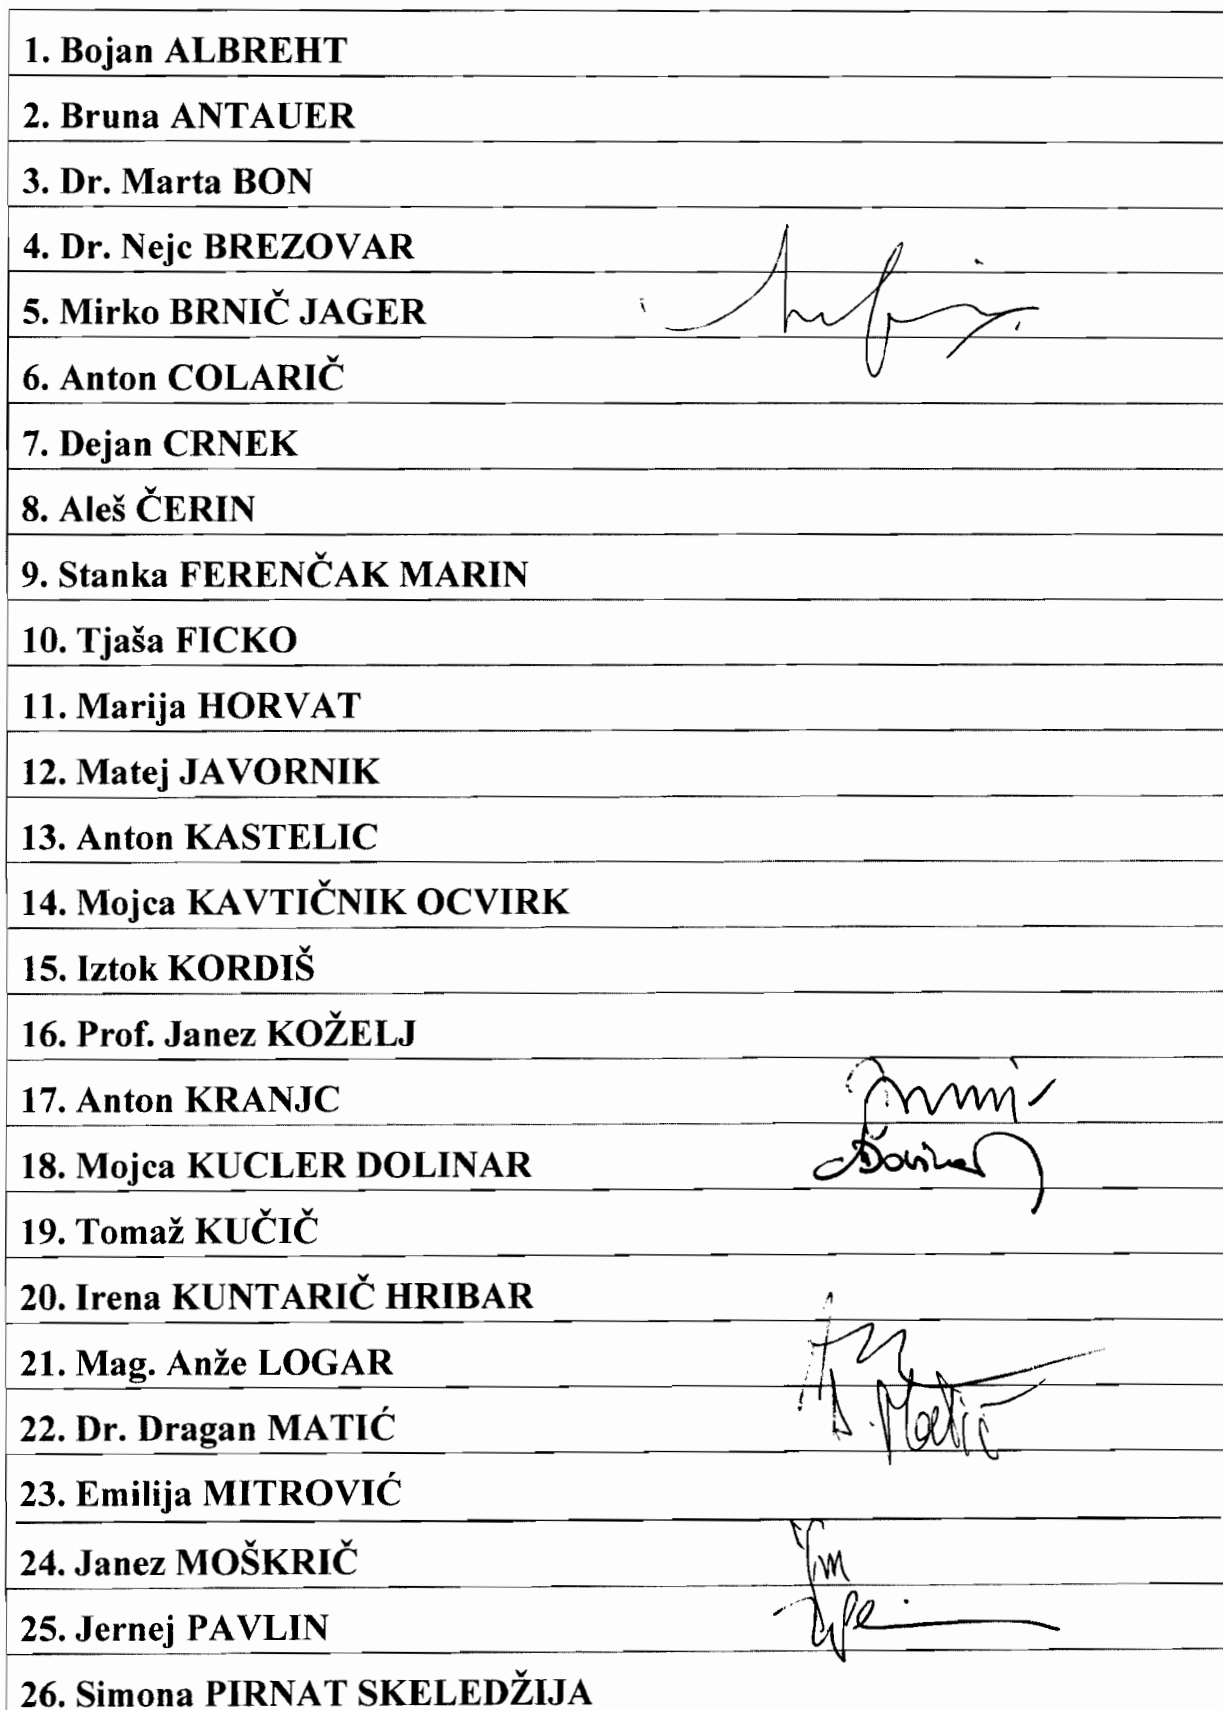 1. Bojan ALBREHT
2. Bruna ANTAUER
3. Dr. Marta BON
4. Dr. Nejc BREZOVAR
5. Mirko BRNIČ JAGER
6. Anton COLARIČ
7. Dejan CRNEK
8. Aleš ČERIN
9. Stanka FERENČAK MARIN
10. Tjaša FICKO
11. Marija HORVAT
12. Matej JAVORNIK
13. Anton KASTELIC
14. Mojca KAVTIČNIK OCVIRK
15. Iztok KORDIŠ
16. Prof. Janez KOŽELJ
17. Anton KRANJC
18. Mojca KUCLER DOLINAR
19. Tomaž KUČIČ
20. Irena KUNTARIČ HRIBAR
21. Mag. Anže LOGAR
22. Dr. Dragan MATIĆ D. Matić
23. Emilija MITROVIĆ
24. Janez MOŠKRIČ
25. Jernej PAVLIN
26. Simona PIRNAT SKELEDŽIJA